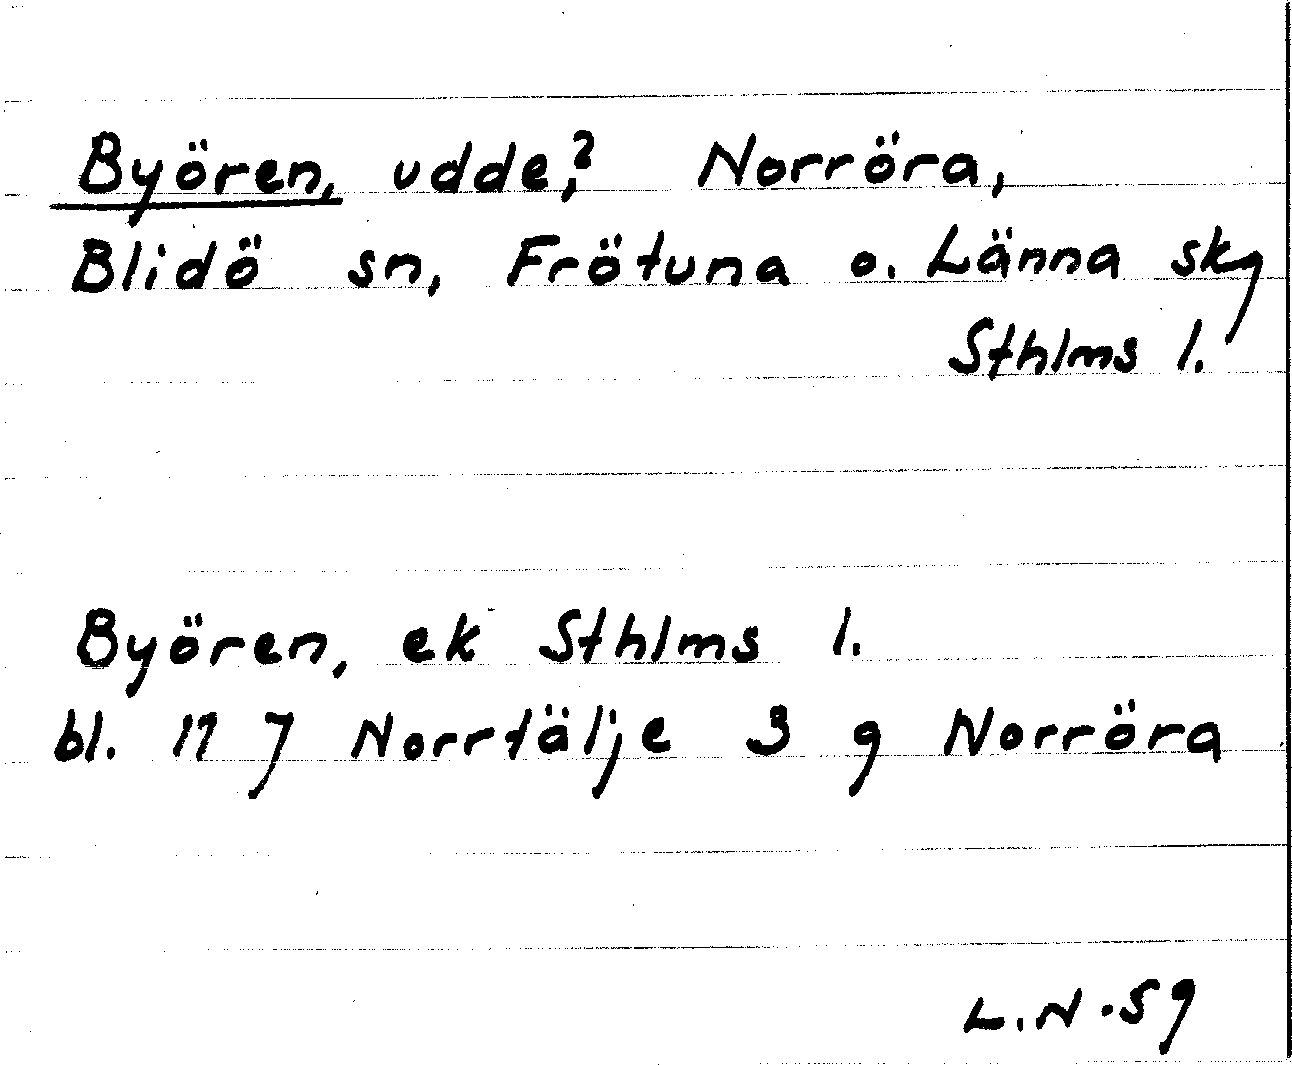 Byören, udde,? Norröra,
Blidö sn, Frötuna o. Länna skg
Sthlms l.
Byören, ek Sthlms l.
bl. 11 J Norrtälje 3 g Norröra
L.N.-59